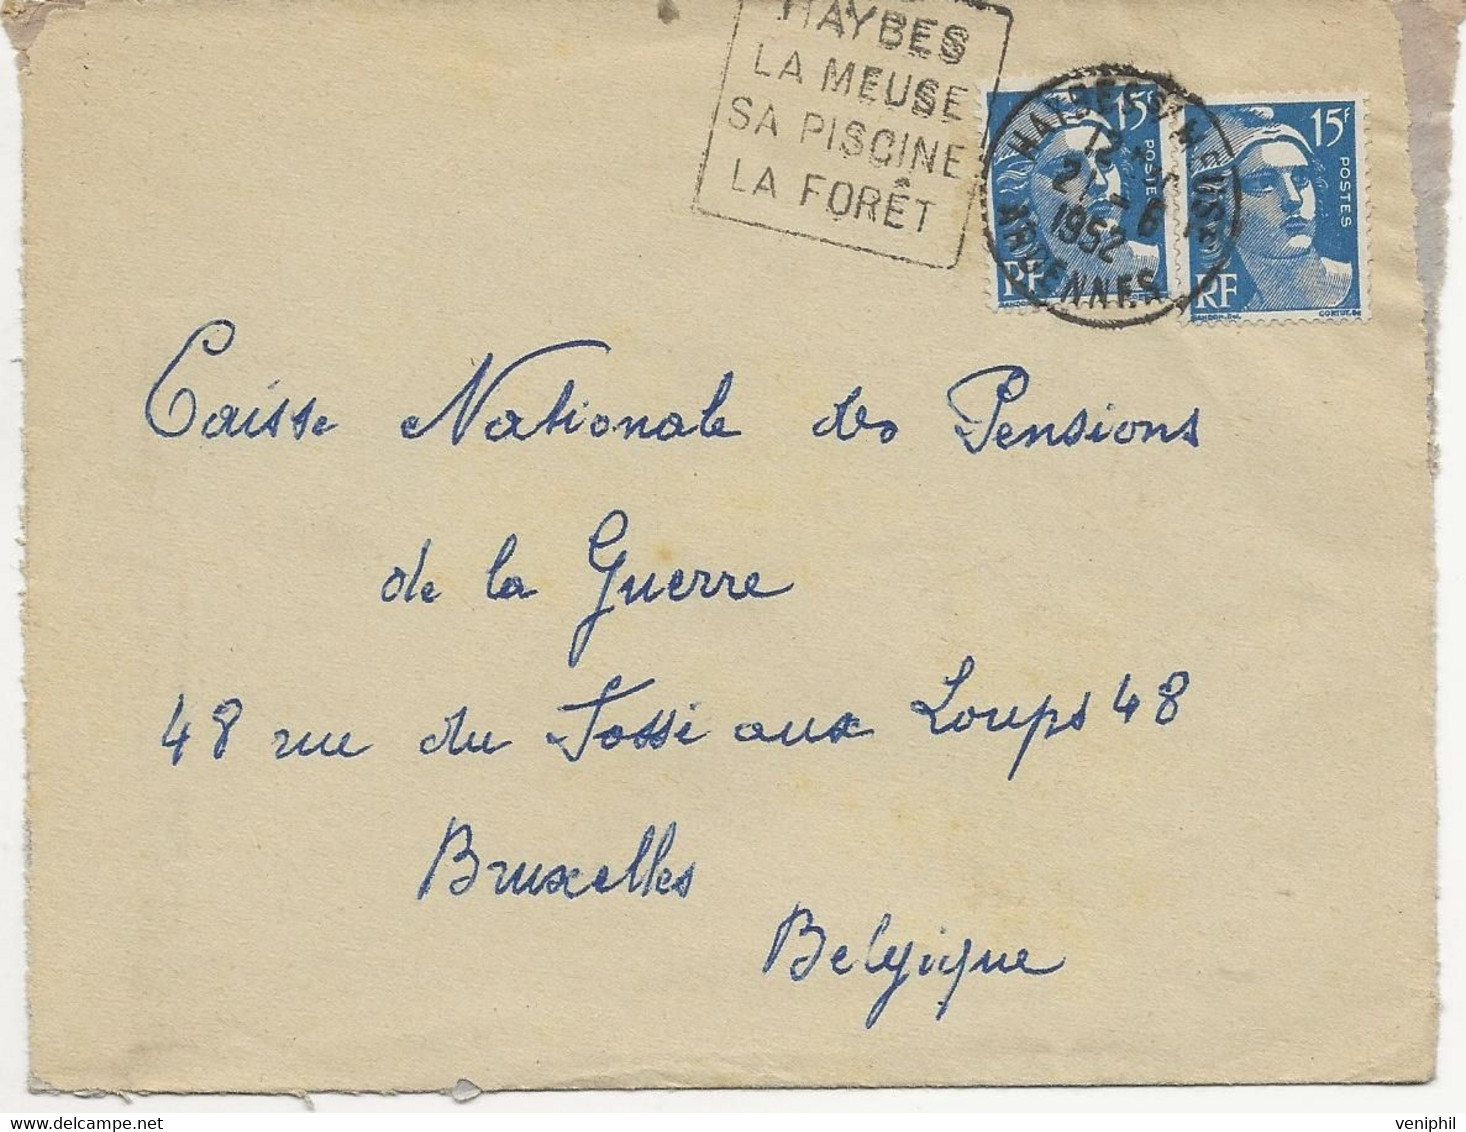 HAYBES
LA MEUSE
SA PISCINE
LA FORÊT
HAYBES S/MEUSE
12
21 6
1952
ARDENNES
15F
POSTES
RF
15F
POSTES
RF
Caisse Nationale des Pensions
de la Guerre
48 rue du Fossé aux Loups 48
Bruxelles
Belgique
veniphil